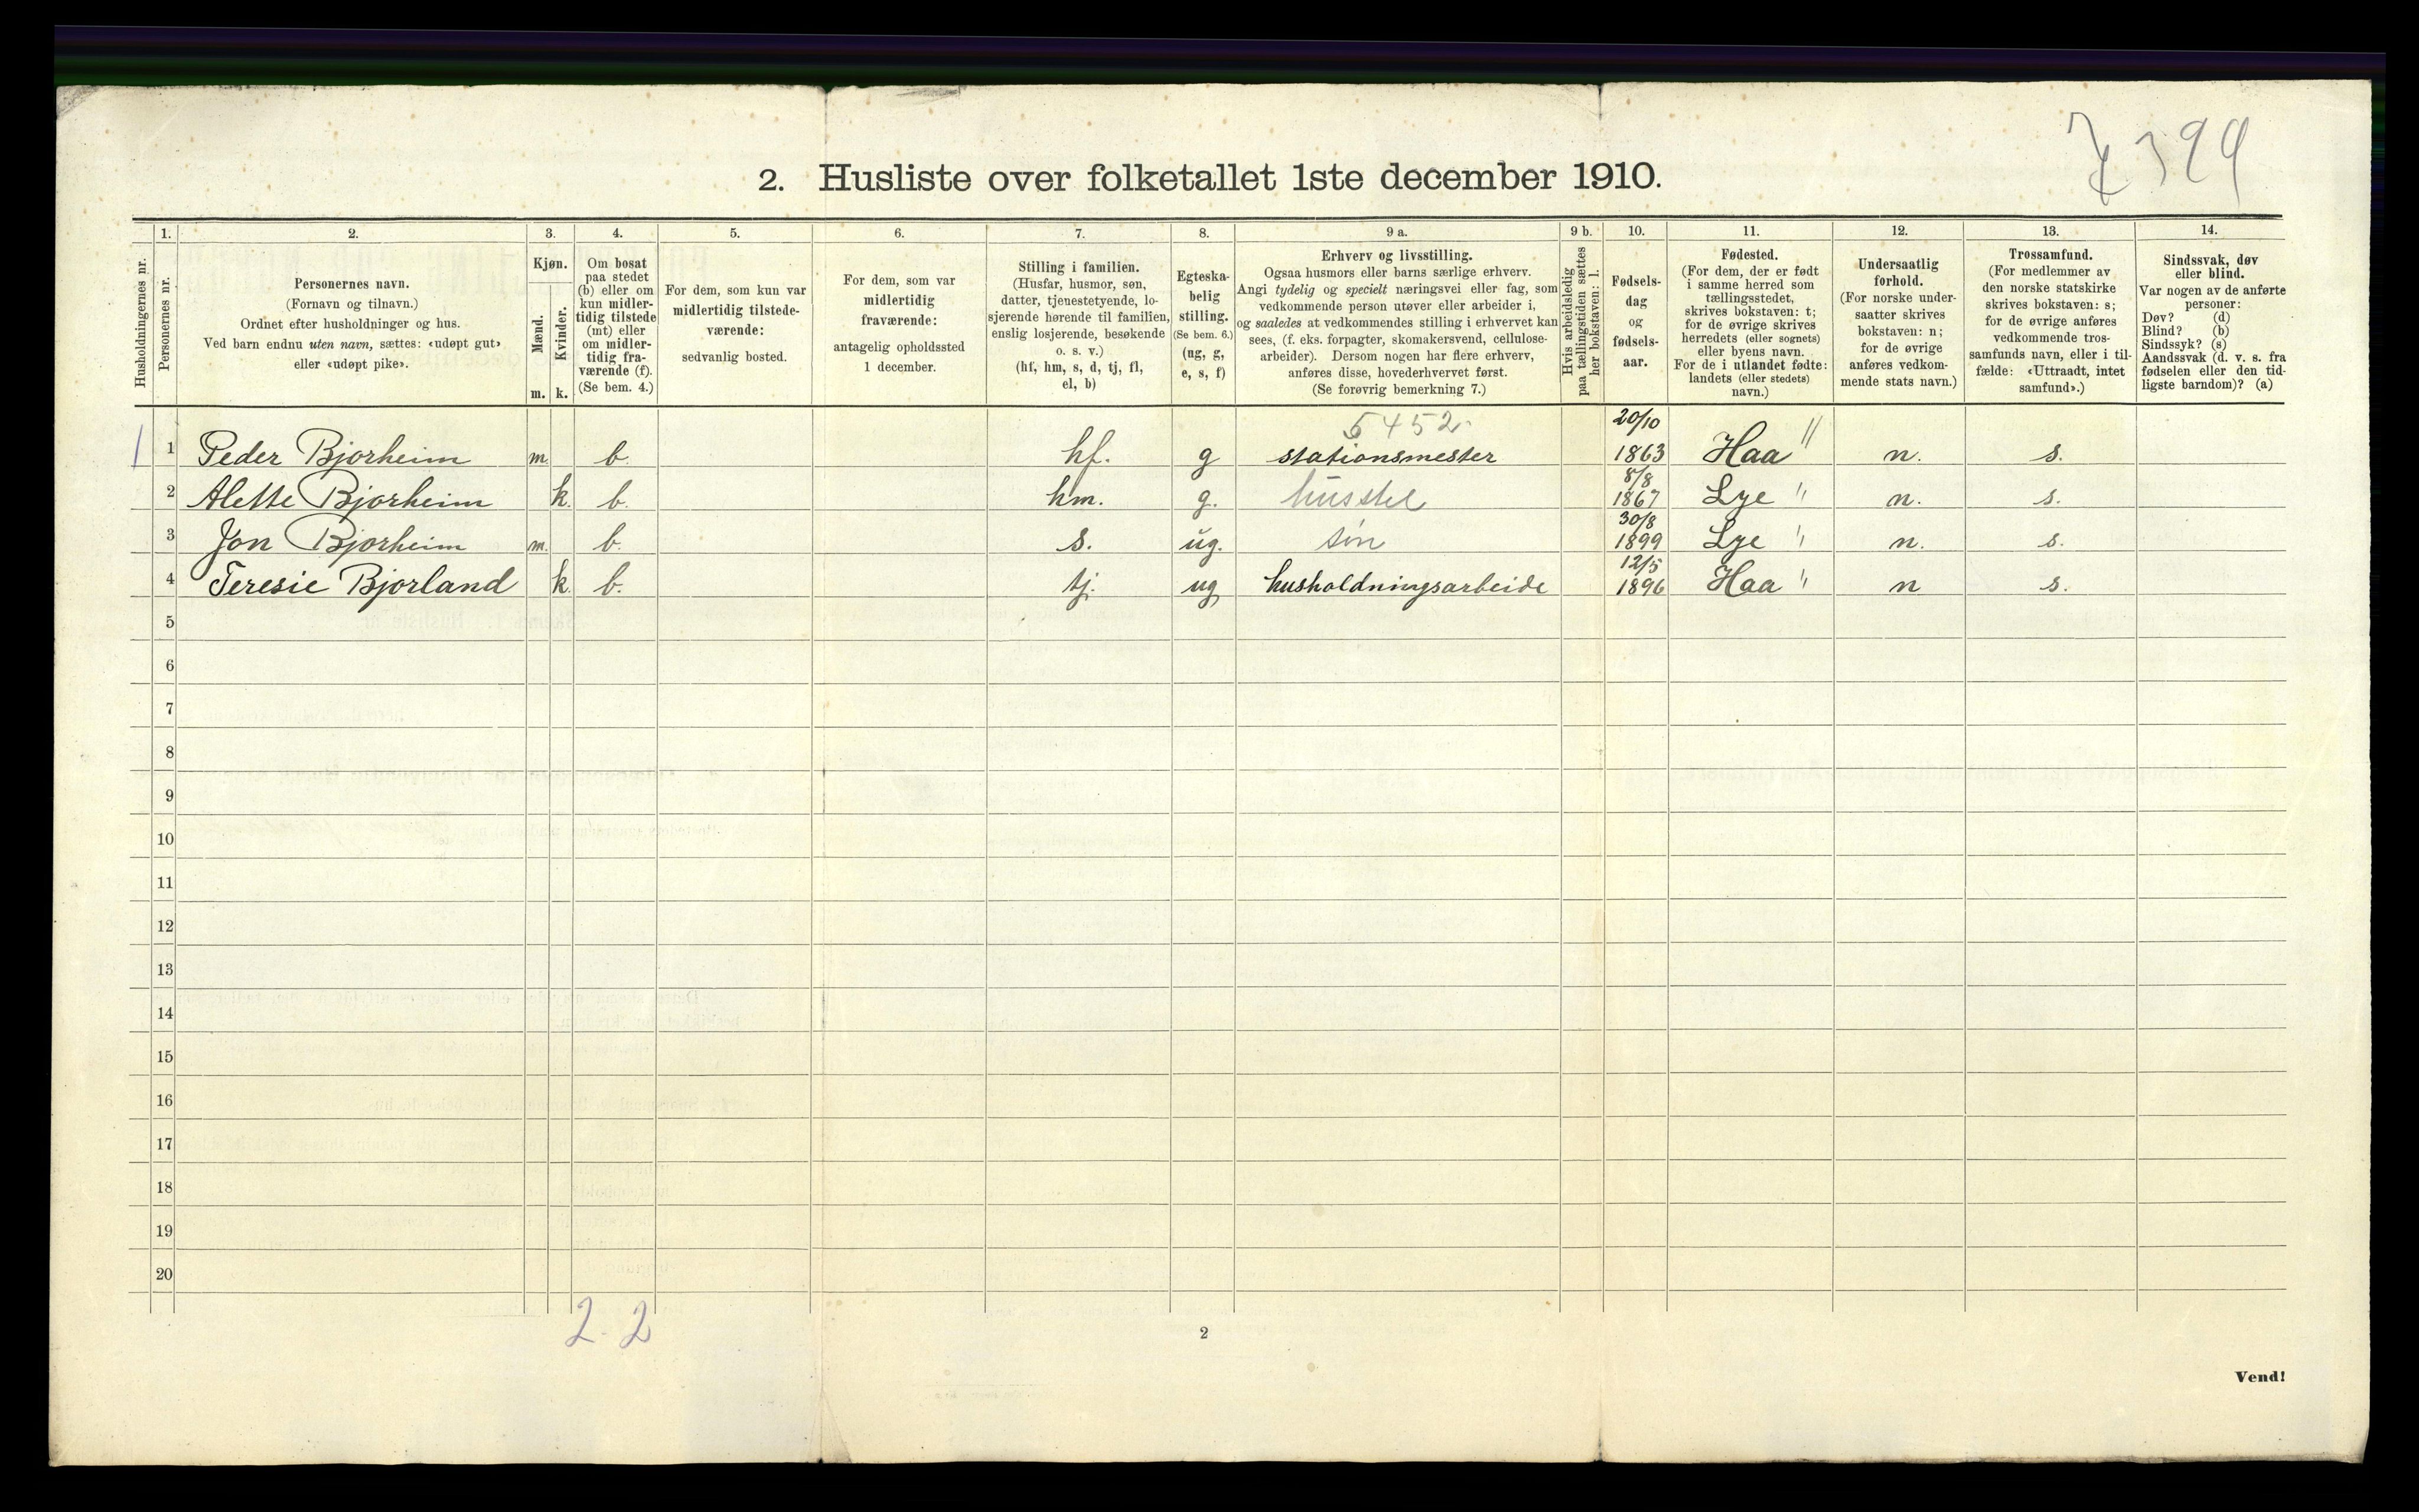 7399
2. Husliste over folketallet 1ste december 1910.
Husholdningernes nr.
1.
Personernes nr.
2.
Personernes navn.
(Fornavn og tilnavn.)
Ordnet efter husholdninger og hus.
Ved barn endnu uten navn, sættes: «udøpt gut»
eller «udøpt pike».
3.
Kjøn.
Mænd.
Kvinder.
m. k.
4.
Om bosat
paa stedet
(b) eller om
kun midler-
tidig tilstede
(mt) eller
om midler-
tidig fra-
værende (f).
(Se bem. 4.)
5.
For dem, som kun var
midlertidig tilstede-
værende:
sedvanlig bosted.
6.
For dem, som var
midlertidig
fraværende:
antagelig opholdssted
1 december.
7.
Stilling i familien.
(Husfar, husmor, søn,
datter, tjenestetyende, lo-
sjerende hørende til familien,
enslig losjerende, besøkende
o. s. v.)
(hf, hm, s, d, tj, fl,
el, b)
8.
Egteska-
belig
stilling.
(Se bem. 6.)
(ug, g,
e, s, f)
9 a.
Erhverv og livsstilling.
Ogsaa husmors eller barns særlige erhverv.
Angi tydelig og specielt næringsvei eller fag, som
vedkommende person utøver eller arbeider i,
og saaledes at vedkommendes stilling i erhvervet kan
sees, (f. eks. forpagter, skomakersvend, cellulose-
arbeider). Dersom nogen har flere erhverv,
anføres disse, hovederhvervet først.
(Se forøvrig bemerkning 7.)
9 b.
Hvis arbeidsledig
paa tællingstiden sættes
her bokstaven: l.
10.
Fødsels-
dag
og
fødsels-
aar.
11.
Fødested.
(For dem, der er født
i samme herred som
tællingsstedet,
skrives bokstaven: t;
for de øvrige skrives
herredets (eller sognets)
eller byens navn.
For de i utlandet fødte:
landets (eller stedets)
navn.)
12.
Undersaatlig
forhold.
(For norske under-
saatter skrives
bokstaven: n;
for de øvrige
anføres vedkom-
mende stats navn.)
13.
Trossamfund.
(For medlemmer av
den norske statskirke
skrives bokstaven: s;
for de øvrige anføres
vedkommende tros-
samfunds navn, eller i til-
fælde: «Uttraadt, intet
samfund».)
14.
Sindssvak, døv
eller blind.
Var nogen av de anførte
personer:
Døv? (d)
Blind? (b)
Sindssyk? (s)
Aandssvak (d. v. s. fra
fødselen eller den tid-
ligste barndom)? (a)
5452 20/10
1 1 Peder Bjorheim m. b. hf. g stationsmester 1863 Haa " n. s.
8/8
2 Alette Bjorheim k. b. hm. g. husstel 1867 Lye " n. s.
30/8
3 Jon Bjorheim m. b. s. ug. søn 1899 Lye " n. s.
12/5
4 Teresie Bjorland k. b. tj. ug husholdningsarbeide 1896 Haa " n s.
5
6
7
8
9
10
11
12
13
14
15
16
17
18
19
20
2 - 2
2
Vend!